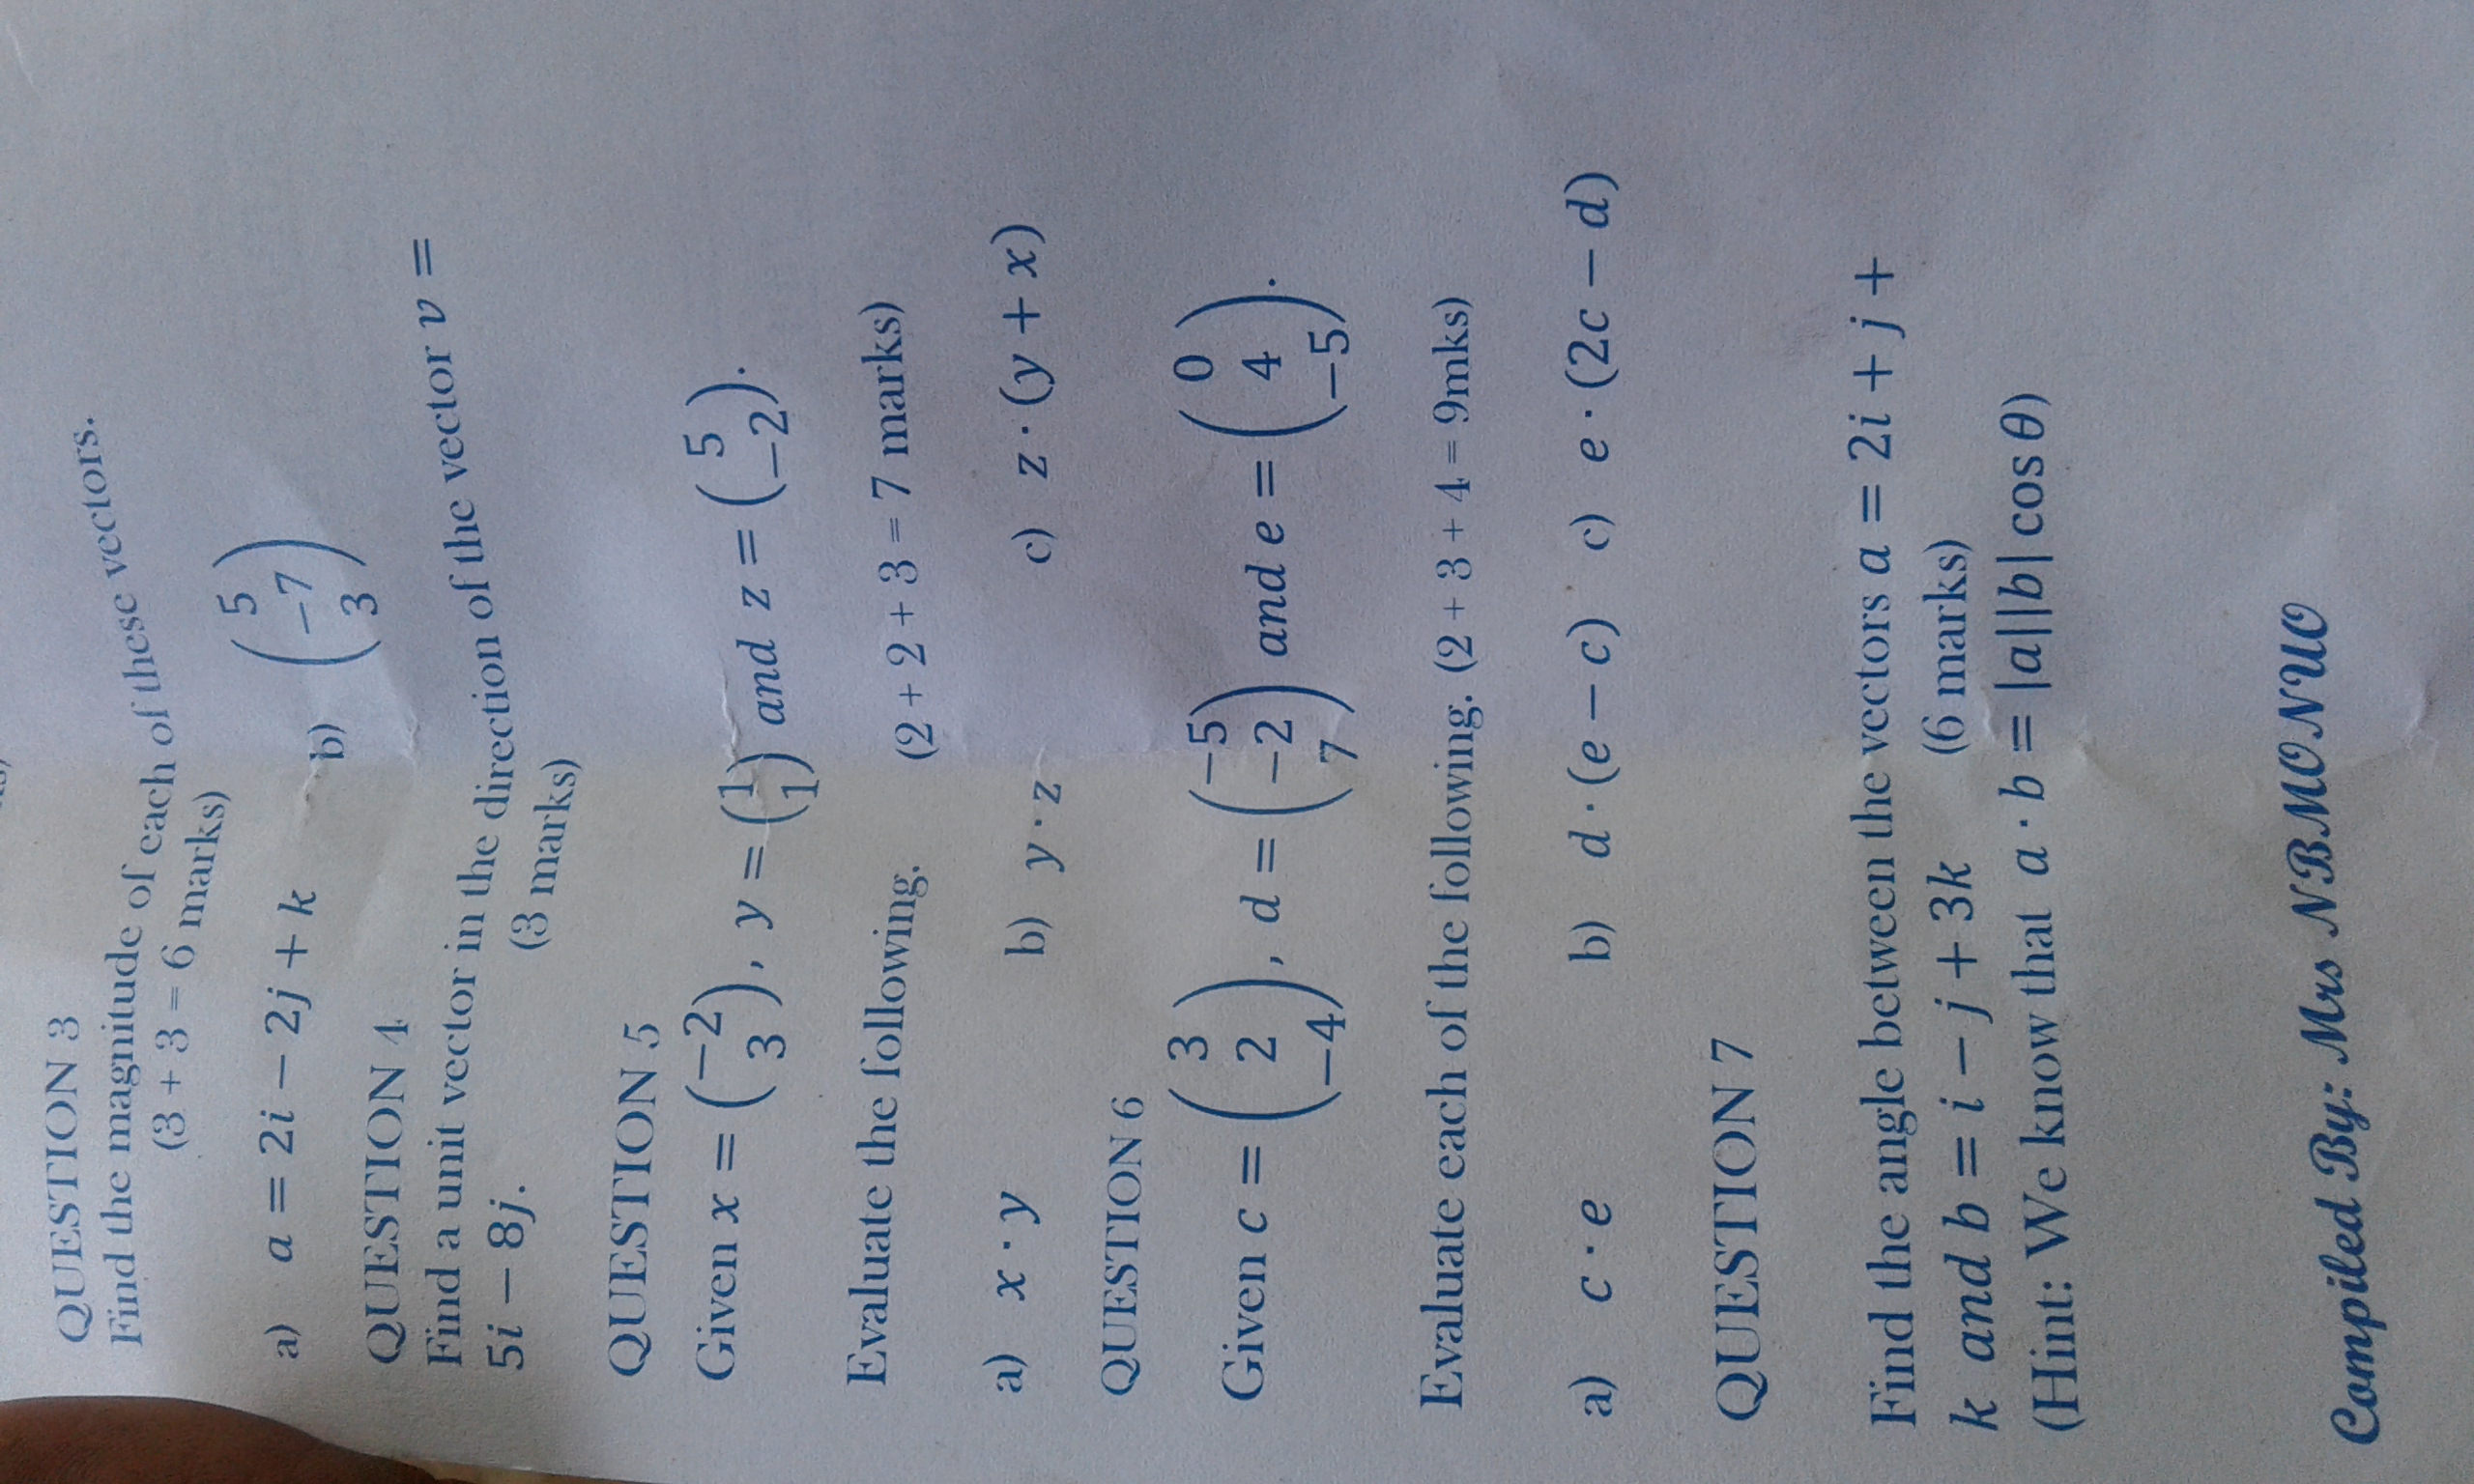 QUESTION 3
Find the magnitude of each of these vectors.
(3 + 3 = 6 marks)
a) a = 2i − 2j + k b) (5 −7 3)
QUESTION 4
Find a unit vector in the direction of the vector v =
5i − 8j. (3 marks)
QUESTION 5
Given x = (−2 3), y = (1 1) and z = (5 −2).
Evaluate the following. (2 + 2 + 3 = 7 marks)
a) x · y b) y · z c) z · (y + x)
QUESTION 6
Given c = (3 2 −4), d = (−5 −2 7) and e = (0 4 −5).
Evaluate each of the following. (2 + 3 + 4 = 9mks)
a) c · e b) d · (e − c) c) e · (2c − d)
QUESTION 7
Find the angle between the vectors a = 2i + j +
k and b = i − j + 3k (6 marks)
(Hint: We know that a · b = |a||b| cos θ)
Compiled By: Mrs NBMONUO